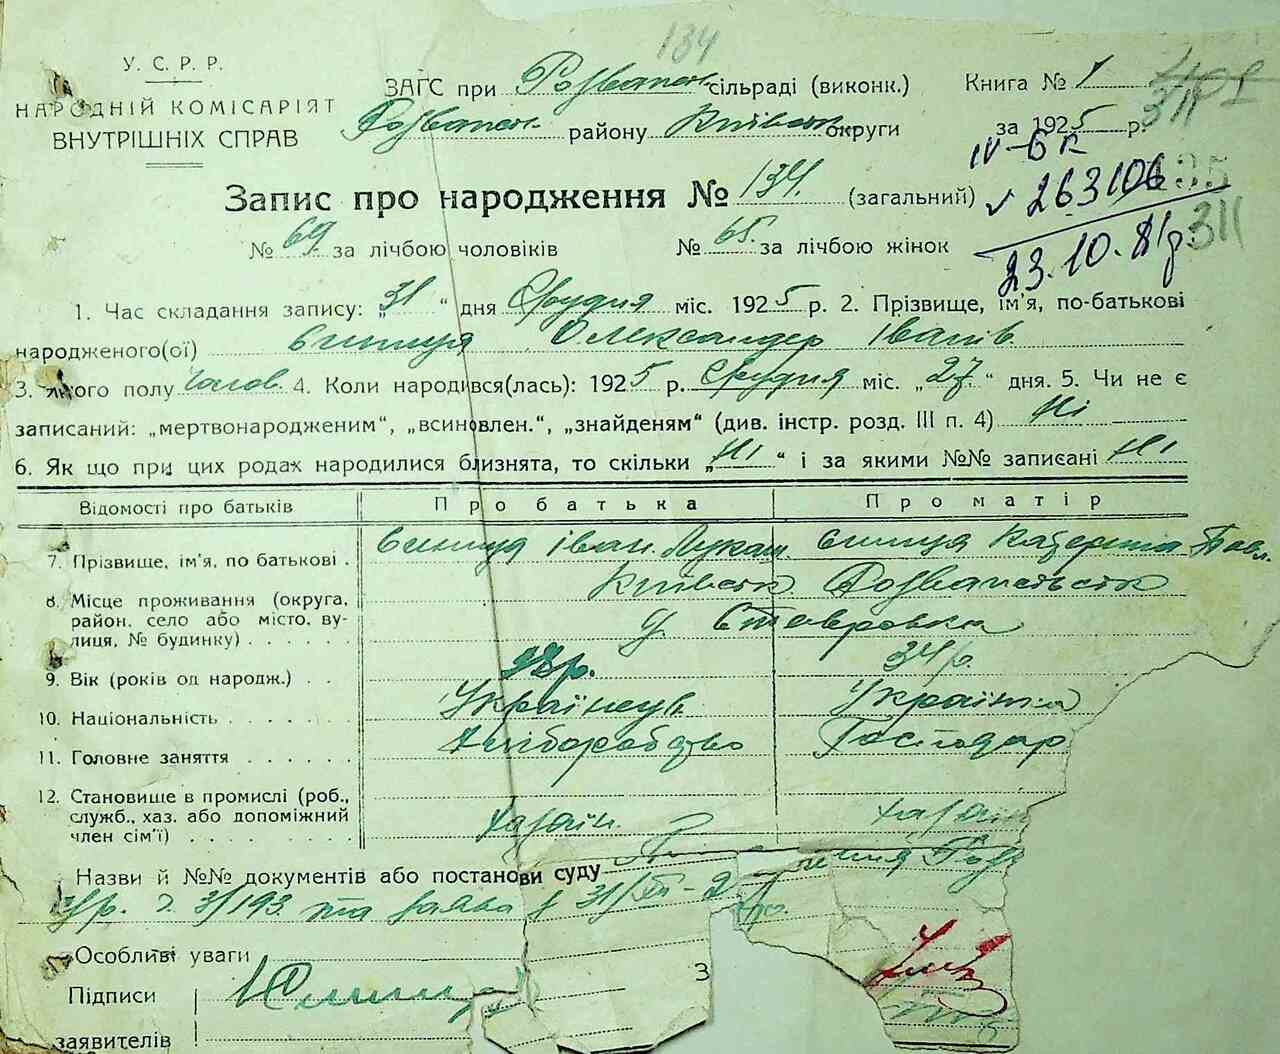 134
У. С. Р. Р.
НАРОДНІЙ КОМІСАРІЯТ
ВНУТРІШНІХ СПРАВ
ЗАГС при Розважев. сільраді (виконк.) Книга № 1
району Київськ округи за 1925 р.
311
IV-БК
Запис про народження № 134. (загальний) 263106
№ 69 за лічбою чоловіків № 65. за лічбою жінок 311
23.10.81р.
1. Час складання запису: „31“ дня Грудня міс. 1925 р. 2. Прізвище, ім'я, по-батькові
народженого(ої) Синиця Олександер Іванів.
3. Якого полу Чолов. 4. Коли народився(лась): 1925 р. Грудня міс. „27.“ дня. 5. Чи не є
записаний: „мертвонародженим“, „всиновлен.“, „знайденям“ (див. інстр. розд. III п. 4) Ні
6. Як що при цих родах народилися близнята, то скільки „Ні“ і за якими №№ записані Ні
Відомості про батьків Про батька Про матір
7. Прізвище, ім'я, по батькові . Синиця Іван Лукаш Синиця Катерина Павл.
8. Місце проживання (округа, Київськ
район, село або місто, ву- Ставровка
лиця, № будинку) . . . . .
9. Вік (років од народж.) . . 34р.
10. Національність . . . . . . Українець Українка
11. Головне заняття . . . . . . Хліборобство Господар
12. Становище в промислі (роб.,
служб., хаз. або допоміжний
член сім'ї) . . . . . . . . . Хазяїн. Хазяїн
Назви й №№ документів або постанови суду
3/193 та заява з 31/XII-2
Особливі уваги
Підписи Синиця 3
заявителів